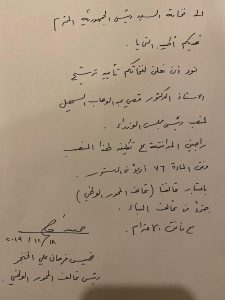 الى فخامة السيد رئيس الجمهورية المحترم
نهديكم أطيب التحايا .
نود أن نعلن لفخامتكم تأييد ترشيح
الاستاذ الدكتور قصي عبد الوهاب السهيل
لمنصب رئيس مجلس الوزراء .
راجين الموافقة على تكليفه لهذا المنصب
وفق المادة ٧٦ أولاً من الدستور .
باعتبار تحالفنا ( تحالف المحور الوطني )
جزء من تحالف البناء .
مع فائق الاحترام .
٢٠١٩ / ١٢ / ١٨
خميس فرحان علي الخنجر
رئيس تحالف المحور الوطني .